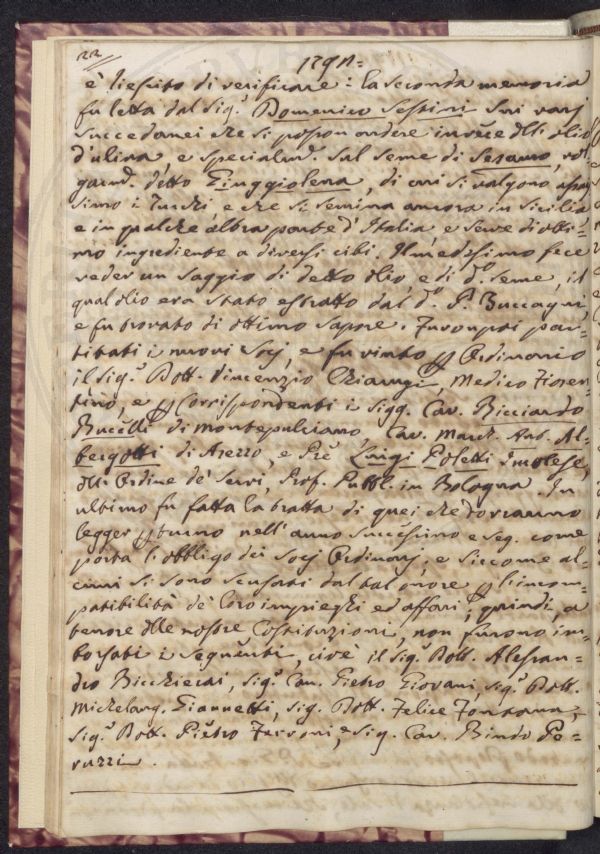 22
1791=
è riescito di verificare: la seconda memoria
fu letta dal Sig.r Domenico Sestini sui varj
succedanei che si posson avere invece dell'olio
d'uliva, e specialm. sul seme di Sesamo, vol-
garm. detto Giuggiolena, di cui si valgono assais-
simo i Turchi e che si semina ancora in Sicilia
e in qualche altra parte d'Italia e serve d'otti-
mo ingrediente a diversi cibi. Il medesimo fece
veder un saggio di detto olio, e di d.o seme, il
qual'olio era stato estratto dal d.o P. Buccagni,
e fu trovato di ottimo sapore. Furon poi par-
titati i nuovi Socj, e fu vinto p Ordinario
il Sig.r Dott. Vincenzio Chiarugi, Medico Fioren-
tino, e p Corrispondenti i Sigg. Cav. Ricciardo
Bucelli di Montepulciano, Cav. March. Ant. Al-
bergotti di Arezzo, e Pre Luigi Poletti Imolese,
dell'Ordine de' Servi, Prof. Pubbl. in Bologna. In
ultimo fu fatta la tratta di quei che dovranno
legger p turno nell'anno successivo e seg. come
porta l'obbligo dei Socj Ordinarj, e siccome al-
cuni si sono scusati dal tal onore p l'incom-
patibilità de' loro impieghi ed affari; quindi, a
tenore delle nostre Costituzioni, non furono im-
borsati i seguenti, cioè il Sig.r Dott. Alessan-
dro Bicchierai, Sig.r Can. Pietro Giovani, Sig.r Dott.
Michelang. Giannetti, Sig. Dott. Felice Fontana,
Sig.r Dott. Pietro Ferroni, e Sig. Cav. Bindo Pe-
ruzzi.